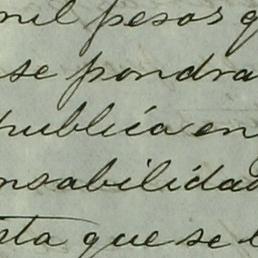 mil pesos q
se pondra
publica en
nsabilidad
sta que se l